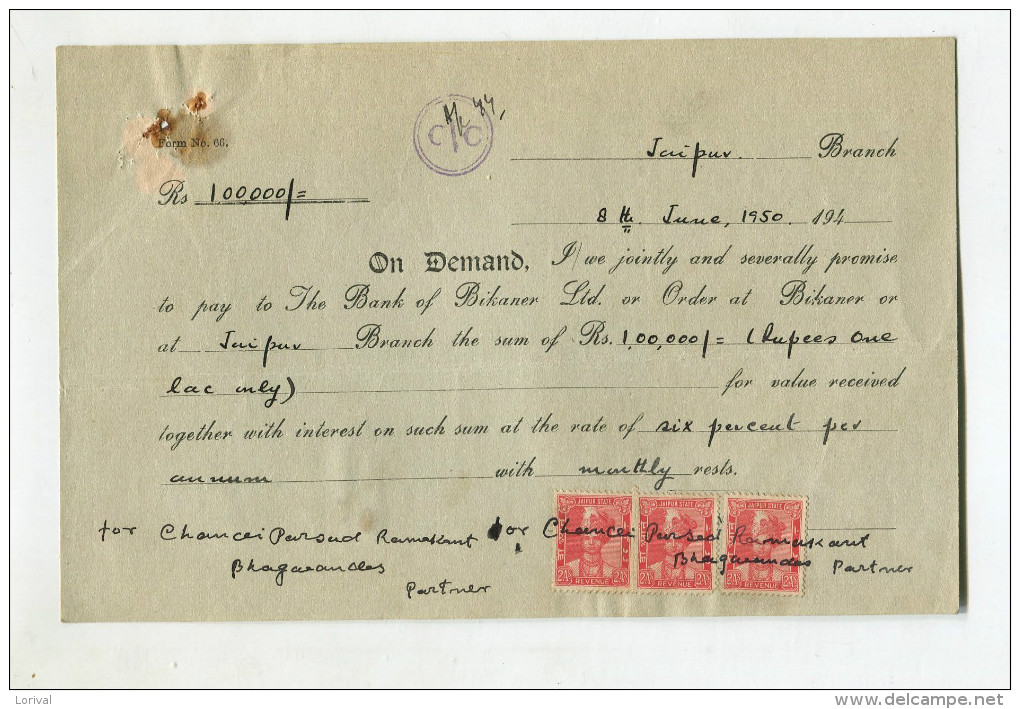 Form No. 66.
C/C
A/c 44,
Jaipur. Branch
Rs 1,00,000/=
8th. June, 1950. 194
On Demand, I/we jointly and severally promise
to pay to The Bank of Bikaner Ltd. or Order at Bikaner or
at Jaipur Branch the sum of Rs. 1,00,000/= (Rupees one
lac only) for value received
together with interest on such sum at the rate of six percent per
annum with monthly rests.
for Persad Ramakant for Persad Ramakant
Bhagwandas Bhagwandas
Partner Partner
JAIPUR STATE JAIPUR STATE JAIPUR STATE
2AS 2AS 2AS 2AS 2AS
REVENUE REVENUE REVENUE
Lorival
http://www.delcampe.net